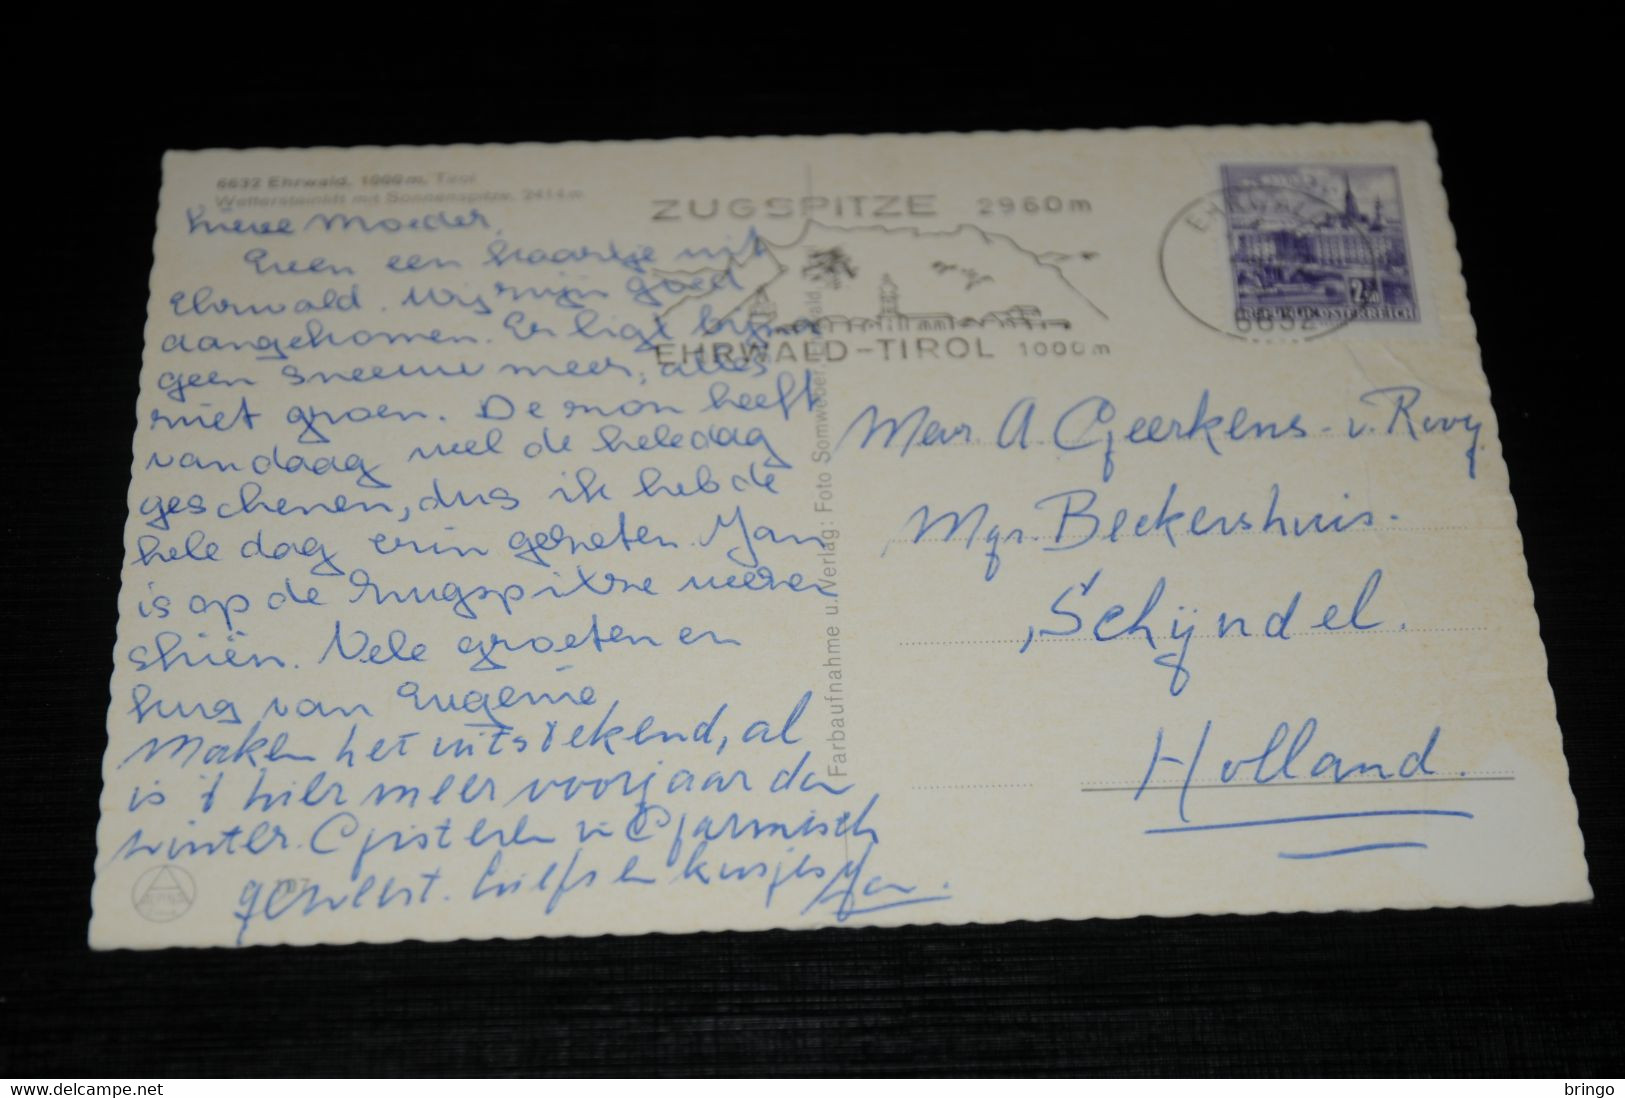 6632 Ehrwald, 1000 m, Tirol
Wettersteinlift mit Sonnenspitze, 2414 m
Lieve Moeder,
Even een kaartje uit
Ehrwald. Wij zijn goed
aangekomen. Er ligt bijna
geen sneeuw meer, alles
niet groen. De zon heeft
vandaag wel de hele dag
geschenen, dus ik heb de
hele dag erin gezeten. Jan
is op de Zugspitze wezen
skiën. Vele groeten en
kus van Eugenie
Maken het uitstekend, al
is 't hier meer voorjaar dan
winter. Gisteren in Garmisch
geweest. Liefs en kusjes Jan.
ZUGSPITZE 2960 m
EHRWALD-TIROL 1000 m
EHRWALD
6632
2.50
REPUBLIK ÖSTERREICH
Farbaufnahme u. Verlag: Foto Somweber, Ehrwald, Tirol
Mevr. A. Geerkens - v. Rooy
Mgr. Bekkershuis.
Schijndel.
Holland.
bringo
delcampe.net